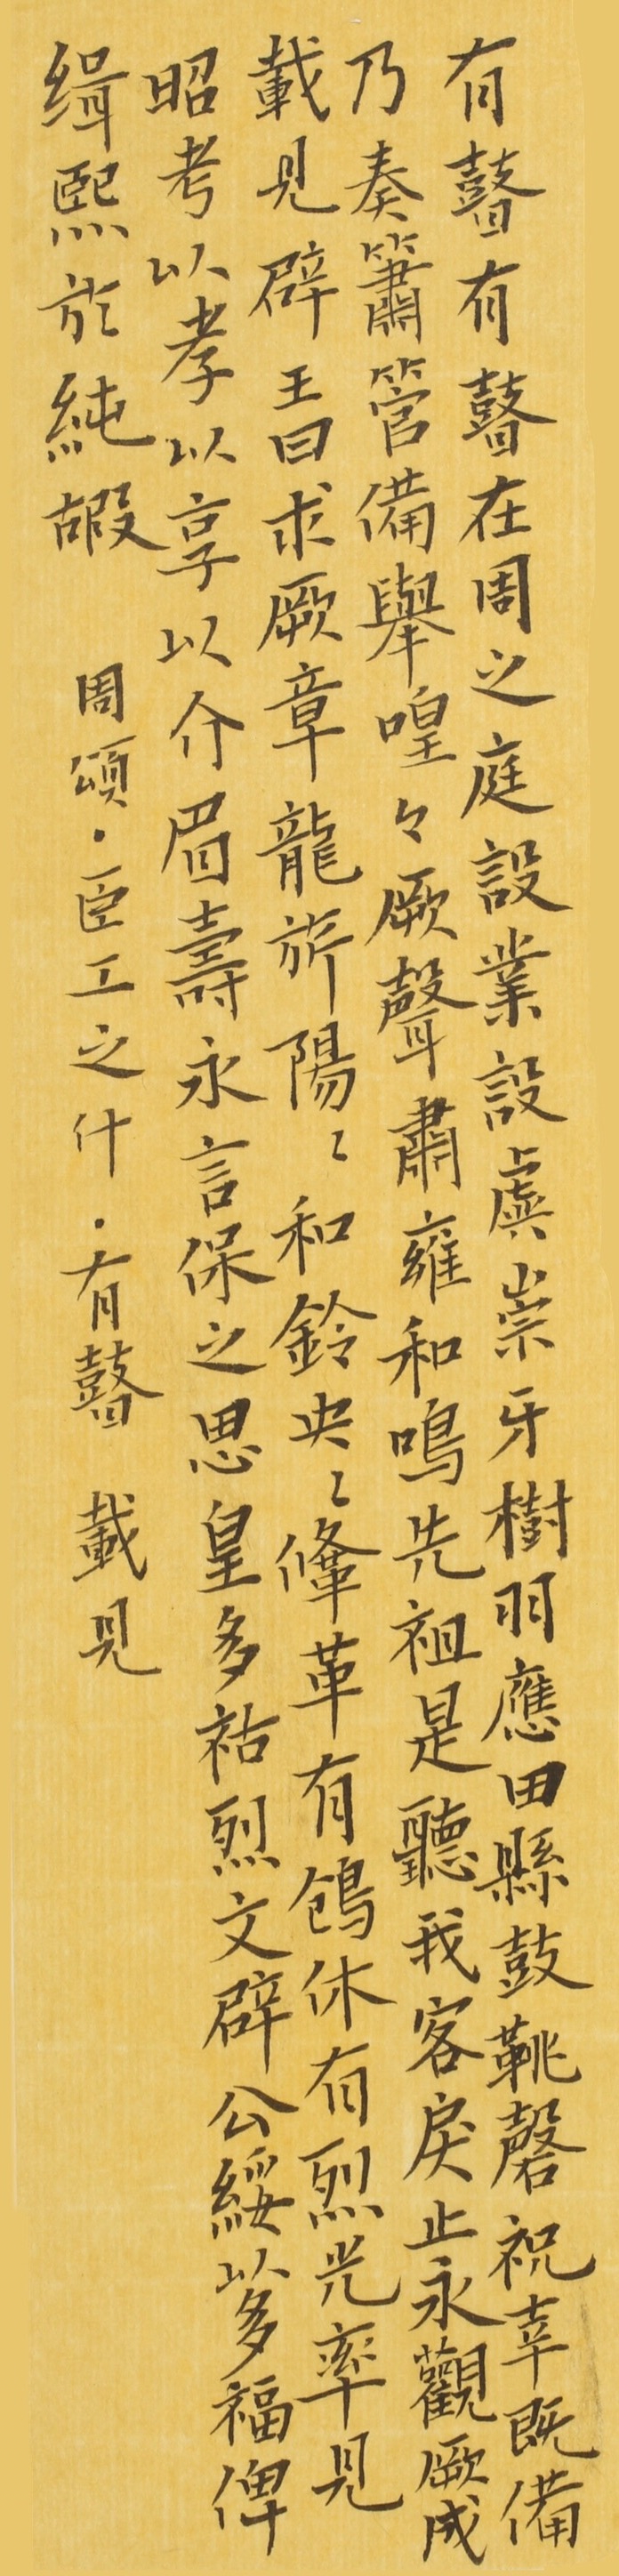 有瞽有瞽在周之庭設業設虡崇牙樹羽應田縣鼓鞉磬祝圉既備
乃奏簫管備舉喤々厥聲肅雍和鳴先祖是聽我客戾止永觀厥成
載見辟王曰求厥章龍旂陽〻和鈴央〻鞗革有鶬休有烈光率見
昭考以孝以享以介眉壽永言保之思皇多祜烈文辟公綏以多福俾
緝熙於純嘏
周頌·臣工之什·有瞽 載見